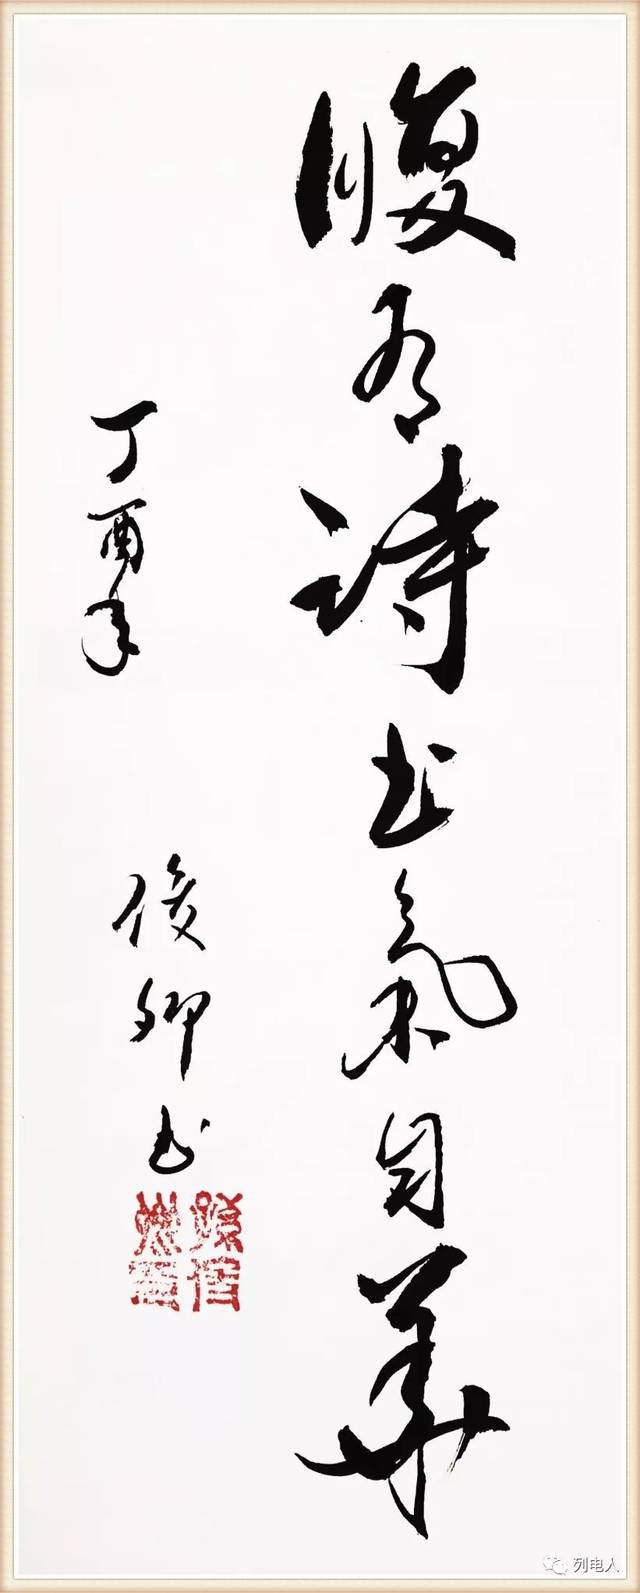 腹有詩书氣自華
丁酉年
俊卿书
列电人